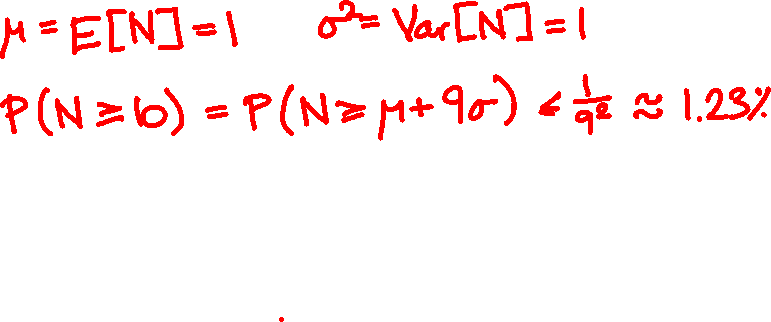 μ = E[N] = 1 σ² = Var[N] = 1
P(N ≥ 10) = P(N ≥ μ + 9σ) < 1/9² ≈ 1.23%